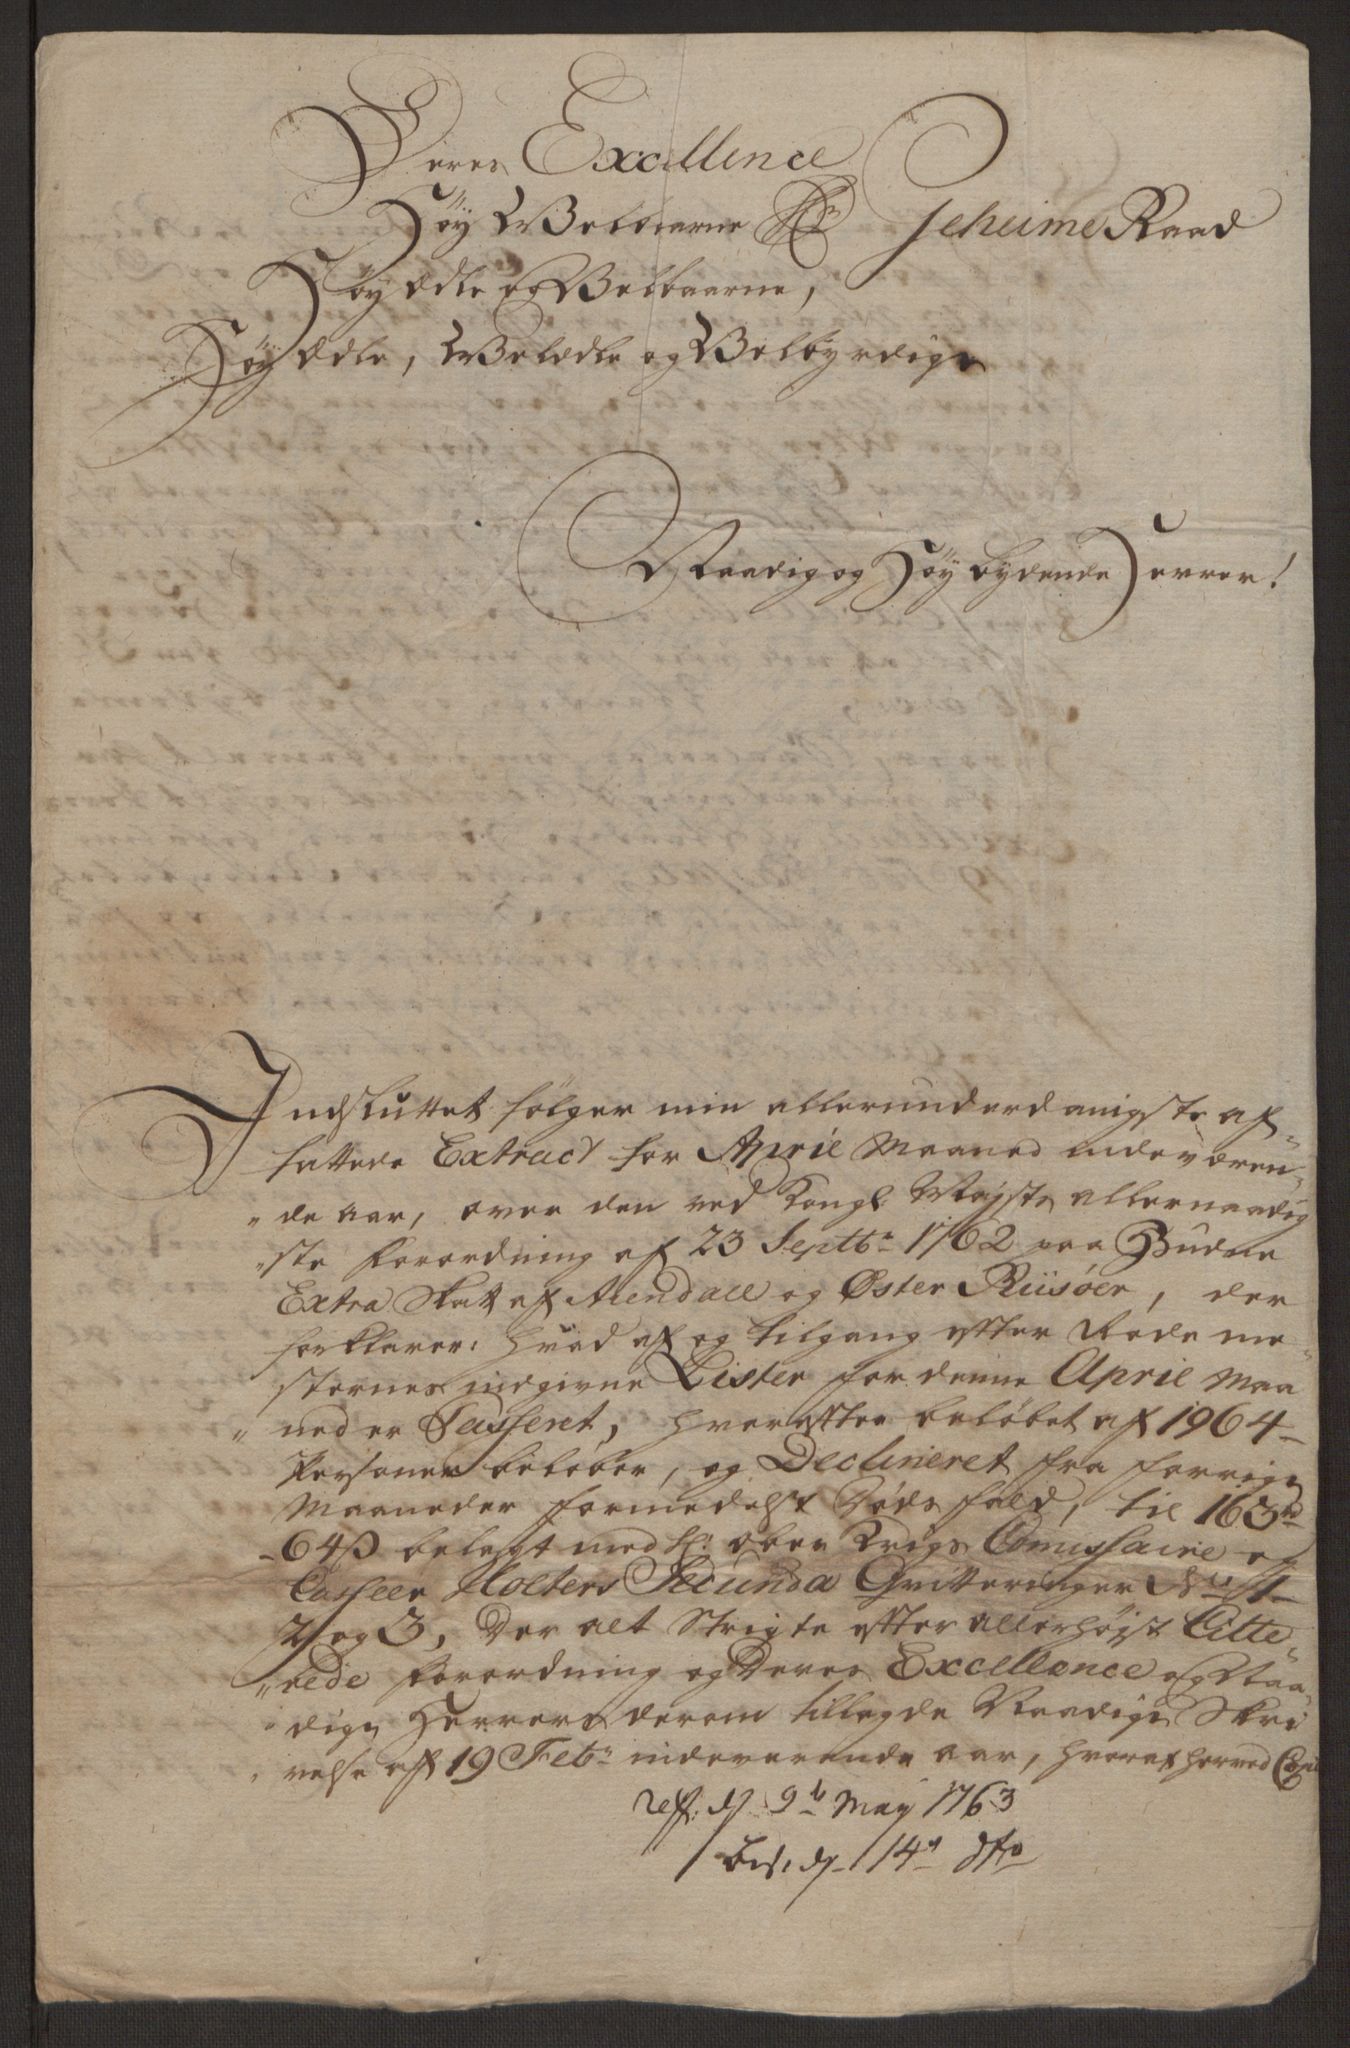 Deres Excellence
Høy Welbaarne Hr Geheime Raad
Høy Ædle og Velbaarne,
Høy Ædle, Welædle og Velbyrdige
Naadig og Høy bydende Herrer!
Indsluttet følger min allerunderdanigste af-
fattede Extract for April Maaned indeværen-
"de aar, over den ved Kongl. Mayste allernaadig
"ste forordning af 23 Septbr 1762 paa Budne
Extra Skatt af Arendall og Øster Riisøer, der
forklarer: hvad af og tilgang efter Rode me-
sternes indgivne Lister for denne April Maa
"ned er Passeret, hvorefter beløbet af 1964
Personer beløber, og Declineret fra forrige
Maaneder formedelst Døds fald, til 163 rd
64 ß belagt med hr. ober Krigs Comissaire og
Casseer Holters Secunda Qvitteringer No 1
2 og 3, Der alt Strigte efter allerhøjst Citte-
"rede forordning og Deres Excellence og Naa-
"dige Herrers derom tillagde Naadige Skri
"velse af 19 Febr: indeværende aar, hvoraf herved Copie
ref: d 9de May 1763
bes. d 14de dto